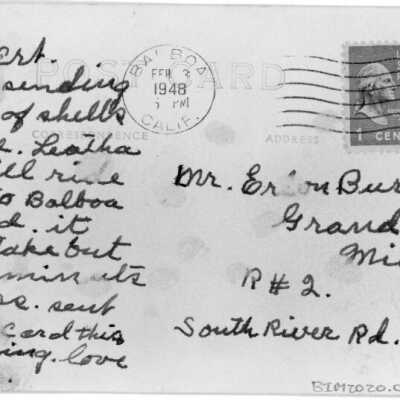 POST CARD
BALBOA
FEB 3
5 PM
1948
CALIF.
1 CEN
CORRESPONDENCE
ADDRESS
ert.
sending
of shells
s. Leatha
ll ride
to Balboa
d. it
take but
minuts
rs. sent
card this
ing. love
Mr. Erwin Bur
Grand
Mi
R # 2.
South River Rd.
BIM2020.0